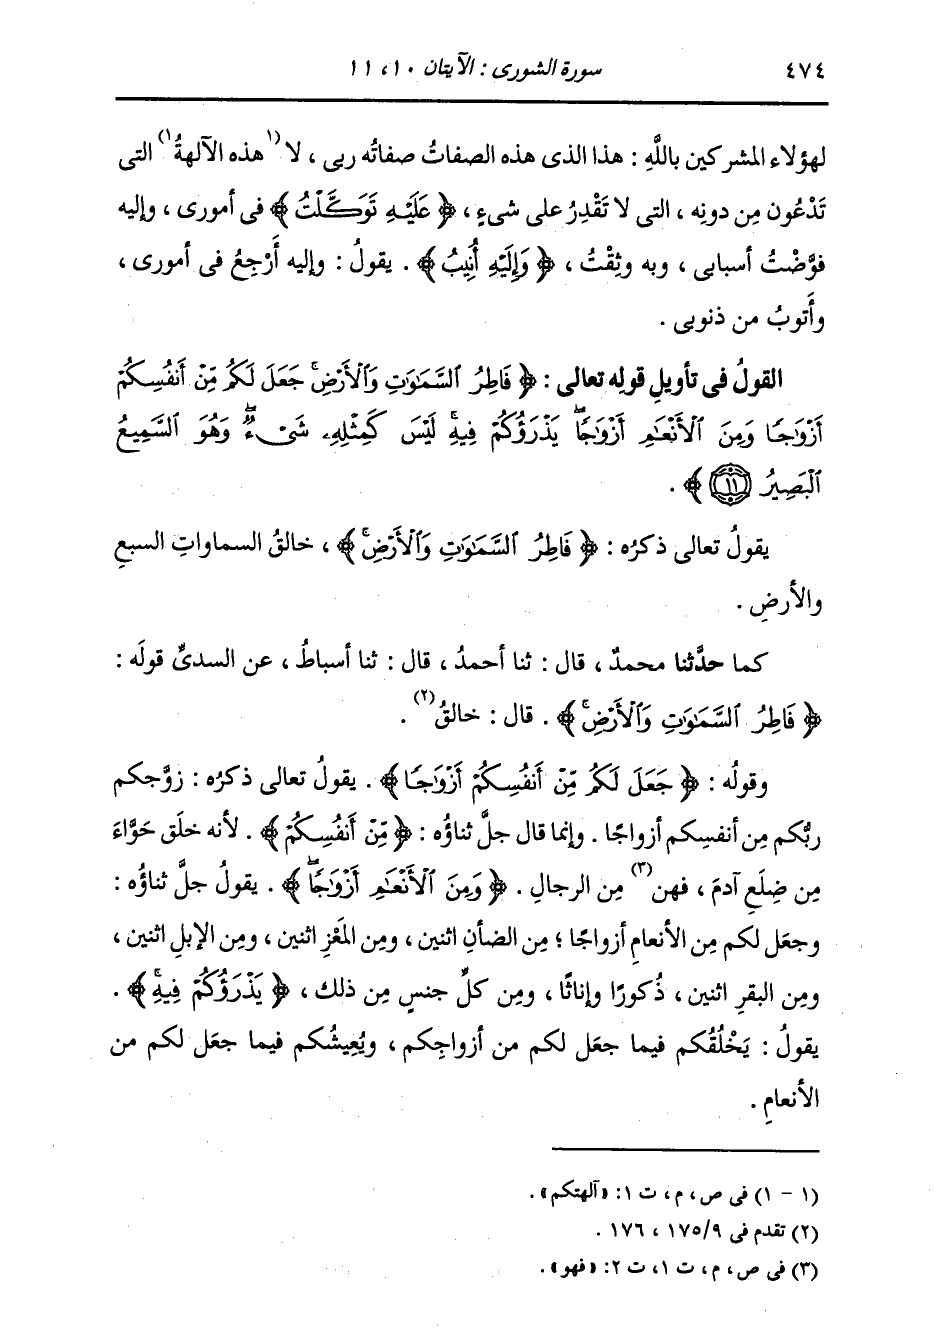 ٤٧٤ سورة الشورى : الآيتان ١٠، ١١
لهؤلاء المشركين باللَّهِ : هذا الذى هذه الصفاتُ صفاتُه ربى ، لا (١هذه الآلهةُ١) التى
تَدْعُون مِن دونِه ، التى لا تَقْدِرُ على شىءٍ ، ﴿ عَلَيْهِ تَوَكَّلْتُ ﴾ فى أمورى ، وإليه
فوَّضْتُ أسبابى ، وبه وثِقْتُ ، ﴿ وَإِلَيْهِ أُنِيبُ ﴾ . يقولُ : وإليه أَرْجِعُ فى أمورى ،
وأَتوبُ من ذنوبى .
القولُ فى تأويلِ قولِه تعالى : ﴿ فَاطِرُ ٱلسَّمَٰوَٰتِ وَٱلْأَرْضِۚ جَعَلَ لَكُم مِّنْ أَنفُسِكُمْ
أَزْوَٰجًا وَمِنَ ٱلْأَنْعَٰمِ أَزْوَٰجًاۖ يَذْرَؤُكُمْ فِيهِۚ لَيْسَ كَمِثْلِهِۦ شَىْءٌۖ وَهُوَ ٱلسَّمِيعُ
ٱلْبَصِيرُ ۝١١ ﴾ .
يقولُ تعالى ذكرُه : ﴿ فَاطِرُ ٱلسَّمَٰوَٰتِ وَٱلْأَرْضِۚ ﴾ ، خالقُ السماواتِ السبعِ
والأرضِ .
كما حدَّثنا محمدٌ ، قال : ثنا أحمدُ ، قال : ثنا أسباطُ ، عن السدىِّ قولَه :
﴿ فَاطِرُ ٱلسَّمَٰوَٰتِ وَٱلْأَرْضِۚ ﴾ . قال : خالقُ(٢) .
وقولُه : ﴿ جَعَلَ لَكُم مِّنْ أَنفُسِكُمْ أَزْوَٰجًا ﴾ . يقولُ تعالى ذكرُه : زوَّجكم
ربُّكم مِن أنفسِكم أزواجًا . وإنما قال جلَّ ثناؤُه : ﴿ مِّنْ أَنفُسِكُمْ ﴾ . لأنه خلَق حَوَّاءَ
مِن ضِلَعِ آدمَ ، فهن(٣) مِن الرجالِ . ﴿ وَمِنَ ٱلْأَنْعَٰمِ أَزْوَٰجًاۖ ﴾ . يقولُ جلَّ ثناؤُه :
وجعَل لكم مِن الأنعامِ أزواجًا ؛ مِن الضأنِ اثنين ، ومِن المَعْزِ اثنين ، ومِن الإبلِ اثنين ،
ومِن البقرِ اثنين ، ذُكورًا وإناثًا ، ومِن كلِّ جنسٍ مِن ذلك ، ﴿ يَذْرَؤُكُمْ فِيهِۚ ﴾ .
يقولُ : يَخْلُقُكم فيما جعَل لكم من أزواجِكم ، ويُعِيشُكم فيما جعَل لكم من
الأنعامِ .
(١ - ١) فى ص، م، ت ١: «آلهتكم» .
(٢) تقدم فى ٩/١٧٥ ، ١٧٦ .
(٣) فى ص، م، ت ١، ت ٢: «فهو» .